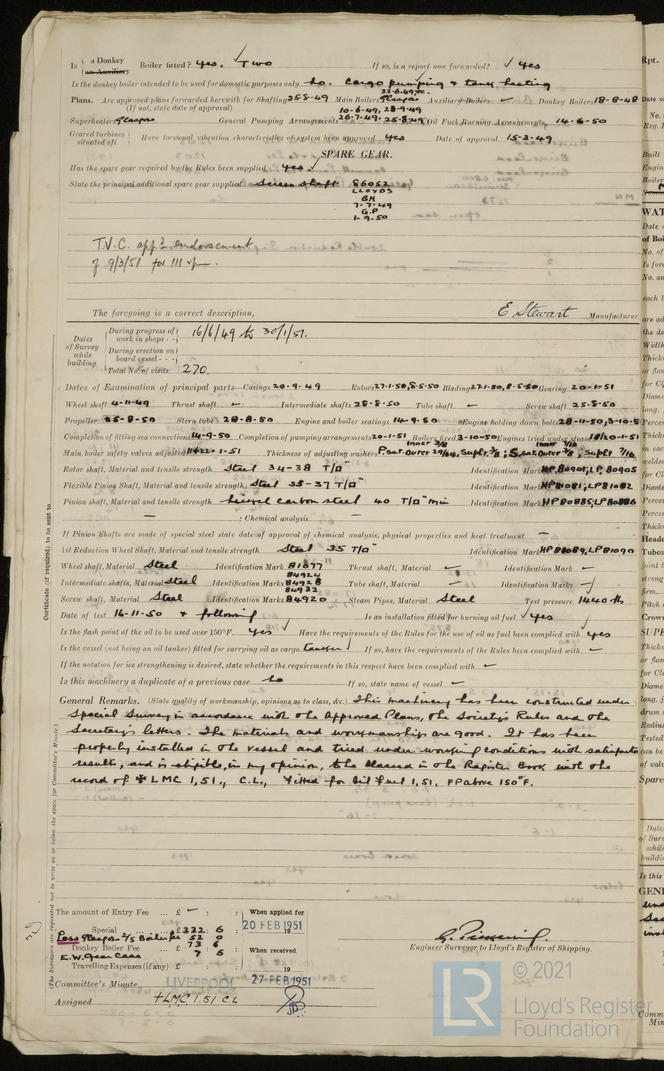 Is a Donkey Boiler fitted? yes. Two If so, is a report now forwarded? yes
(an Auxiliary
Is the donkey boiler intended to be used for domestic purposes only no. Cargo pumping & tank heating
Plans. Are approved plans forwarded herewith for Shafting 25-5-49 Main Boilers Glasgow Auxiliary Boilers – Donkey Boilers 18-8-48
(If not, state date of approval) 10-6-49, 28-9-49
Superheaters Glasgow General Pumping Arrangements 26-7-49, 25-8-49 Oil Fuel Burning Arrangements 14-6-50
Geared turbines situated aft. Have torsional vibration characteristics of system been approved yes Date of approval 15-2-49
SPARE GEAR.
Has the spare gear required by the Rules been supplied yes.
State the principal additional spare gear supplied Screw shaft 86052
LLOYDS
BH
7-7-49
G.P
1-9-50
T.V.C. endorsement
of 9/3/51 for 111
The foregoing is a correct description, E Stewart Manufacturer
Dates of Survey while building
During progress of work in shops - - 16/6/49 to 30/1/51.
During erection on board vessel - - -
Total No. of visits 270.
Dates of Examination of principal parts—Casings 20-9-49 Rotors 27-1-50, 8-5-50 Blading 27-1-50, 8-5-50 Gearing 20-1-51
Wheel shaft 4-11-49 Thrust shaft – Intermediate shafts 28-8-50 Tube shaft – Screw shaft 25-8-50
Propeller 25-8-50 Stern tube 28-8-50 Engine and boiler seatings 14-9-50 Engine holding down bolts 28-11-50, 3-10-5
Completion of fitting sea connections 14-9-50 Completion of pumping arrangements 20-1-51 Boilers fixed 3-10-50 Engines tried under steam 18/20-1-51
Main boiler safety valves adjusted 22-1-51 Thickness of adjusting washers
Rotor shaft, Material and tensile strength Steel 34-38 T/□" Identification Mark HP 80901; LP. 80905
Flexible Pinion Shaft, Material and tensile strength Steel 35-37 T/□" Identification Mark HP81081; LP81082
Pinion shaft, Material and tensile strength carbon steel 40 T/□" min Identification Mark HP80885; LP80886
– ; Chemical analysis –
If Pinion Shafts are made of special steel state date of approval of chemical analysis, physical properties and heat treatment –
1st Reduction Wheel Shaft, Material and tensile strength Steel 35 T/□" Identification Mark HP81089, LP81090
Wheel shaft, Material Steel Identification Mark 81077 Thrust shaft, Material – Identification Mark –
84924
Intermediate shafts, Material Steel Identification Marks 84928 Tube shaft, Material – Identification Marks –
84932
Screw shaft, Material Steel Identification Marks 84920 Steam Pipes, Material Steel Test pressure 1440 lb
Date of test 16-11-50 & following Is an installation fitted for burning oil fuel yes
Is the flash point of the oil to be used over 150°F. yes Have the requirements of the Rules for the use of oil as fuel been complied with yes
Is the vessel (not being an oil tanker) fitted for carrying oil as cargo tanker If so, have the requirements of the Rules been complied with –
If the notation for ice strengthening is desired, state whether the requirements in this respect have been complied with –
Is this machinery a duplicate of a previous case no If so, state name of vessel –
General Remarks. (State quality of workmanship, opinions as to class, &c.) This machinery has been constructed under
Special Survey in accordance with the Approved Plans, the Society's Rules and the
Secretary's letters. The materials and workmanship are good. It has been
properly installed in the vessel and tried under working conditions with satisfactory
results, and is eligible, in my opinion, to be classed in the Register Book with the
record of ✠ LMC 1,51, C.L., Fitted for oil fuel 1,51, FP above 150°F.
Certificate (if required) to be sent to
(The Surveyors are requested not to write on or below the space for Committee's Minute.)
The amount of Entry Fee ... £ – : : When applied for
Special £332 : 6 20 FEB 1951
Less Glasgow 2/5 Boiler fee 52 0
Donkey Boiler Fee 73 6 When received
E.W. Gear Case 7 6
Travelling Expenses (if any) £ : : 19
Engineer Surveyor to Lloyd's Register of Shipping.
Committee's Minute LIVERPOOL 27 FEB 1951
Assigned +LMC 1.51 CL
© 2021
LR
Lloyd's Register
Foundation